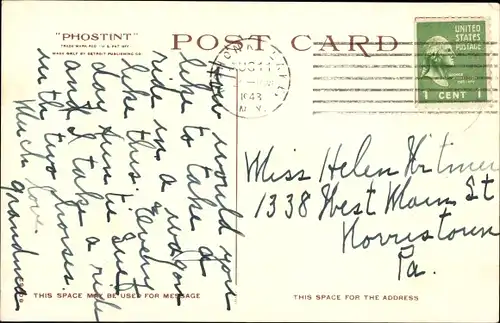 "PHOSTINT"
TRADE MARK REG. U.S. PAT. OFF.
MADE ONLY BY DETROIT PUBLISHING CO.
POST CARD
UNITED
STATES
POSTAGE
1 CENT 1
AUG 11
1943
N.Y.
How would you
like to take a
ride in a wagon
like this. Every
day Aunt Sue
and I take a ride
in the two horses.
Much love.
grandma
Miss Helen Witmer
1338 West Main St
Norristown
Pa.
THIS SPACE MAY BE USED FOR MESSAGE
THIS SPACE IS FOR THE ADDRESS